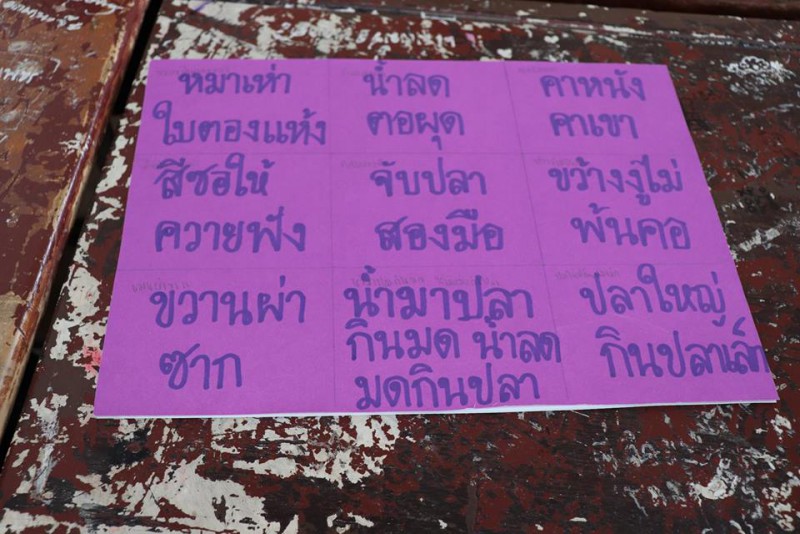 หมาเห่า
ใบตองแห้ง
น้ำลด
ตอผุด
คาหนัง
คาเขา
สีซอให้
ควายฟัง
จับปลา
สองมือ
ขว้างงูไม่
พ้นคอ
ขวานผ่า
ซาก
น้ำมาปลา
กินมด น้ำลด
มดกินปลา
ปลาใหญ่
กินปลาเล็ก